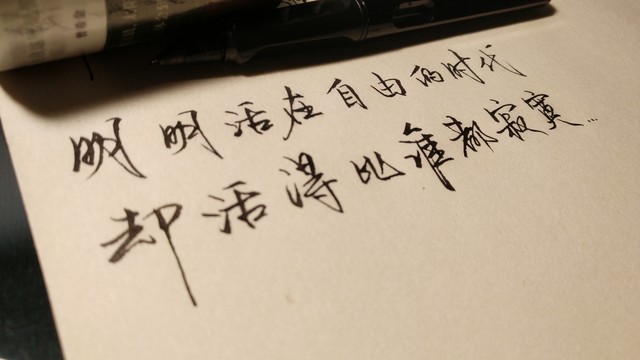 明明活在自由的时代
却活得比谁都寂寞…